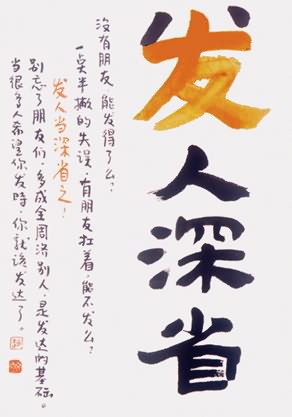 发人深省
没有朋友，能发得了么？
一点半撇的失误，有朋友扛着，能不发么？
发人当深省之！
别忘了朋友们，多成全周济别人，是发达的基础。
当很多人希望你发时，你就该发达了。